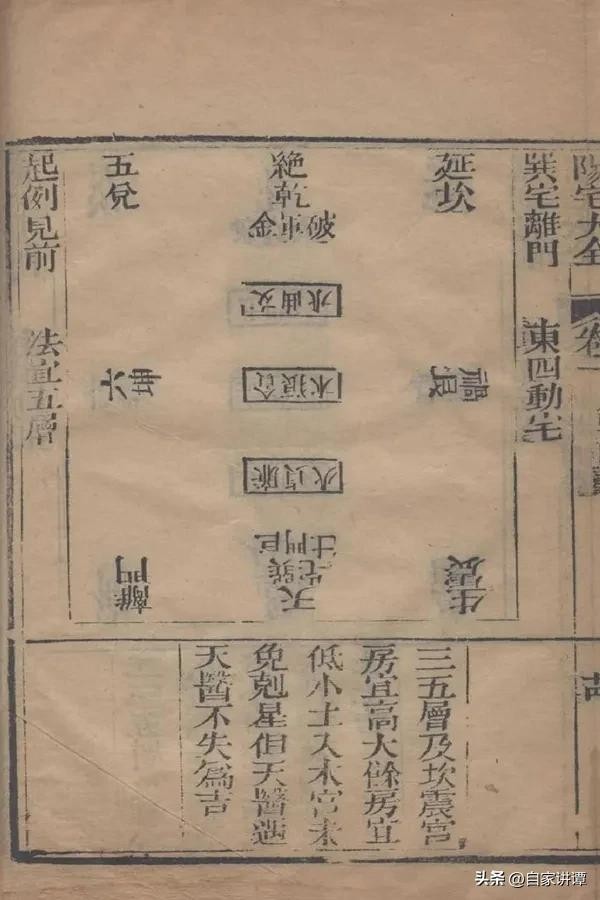 陽宅大全 卷一
巽宅離門 東四動宅
延坎
禍艮
生震
絶乾
破軍金
文曲水
貪狼木
廉貞火
巨門土
天宅巽
五兌
六坤
離門
起例見前 法宜五層
三五層及坎震宮
房宜高大餘房宜
低小土入木宮未
免剋星但天醫遇
天醫不失爲吉
头条 @自家讲谭